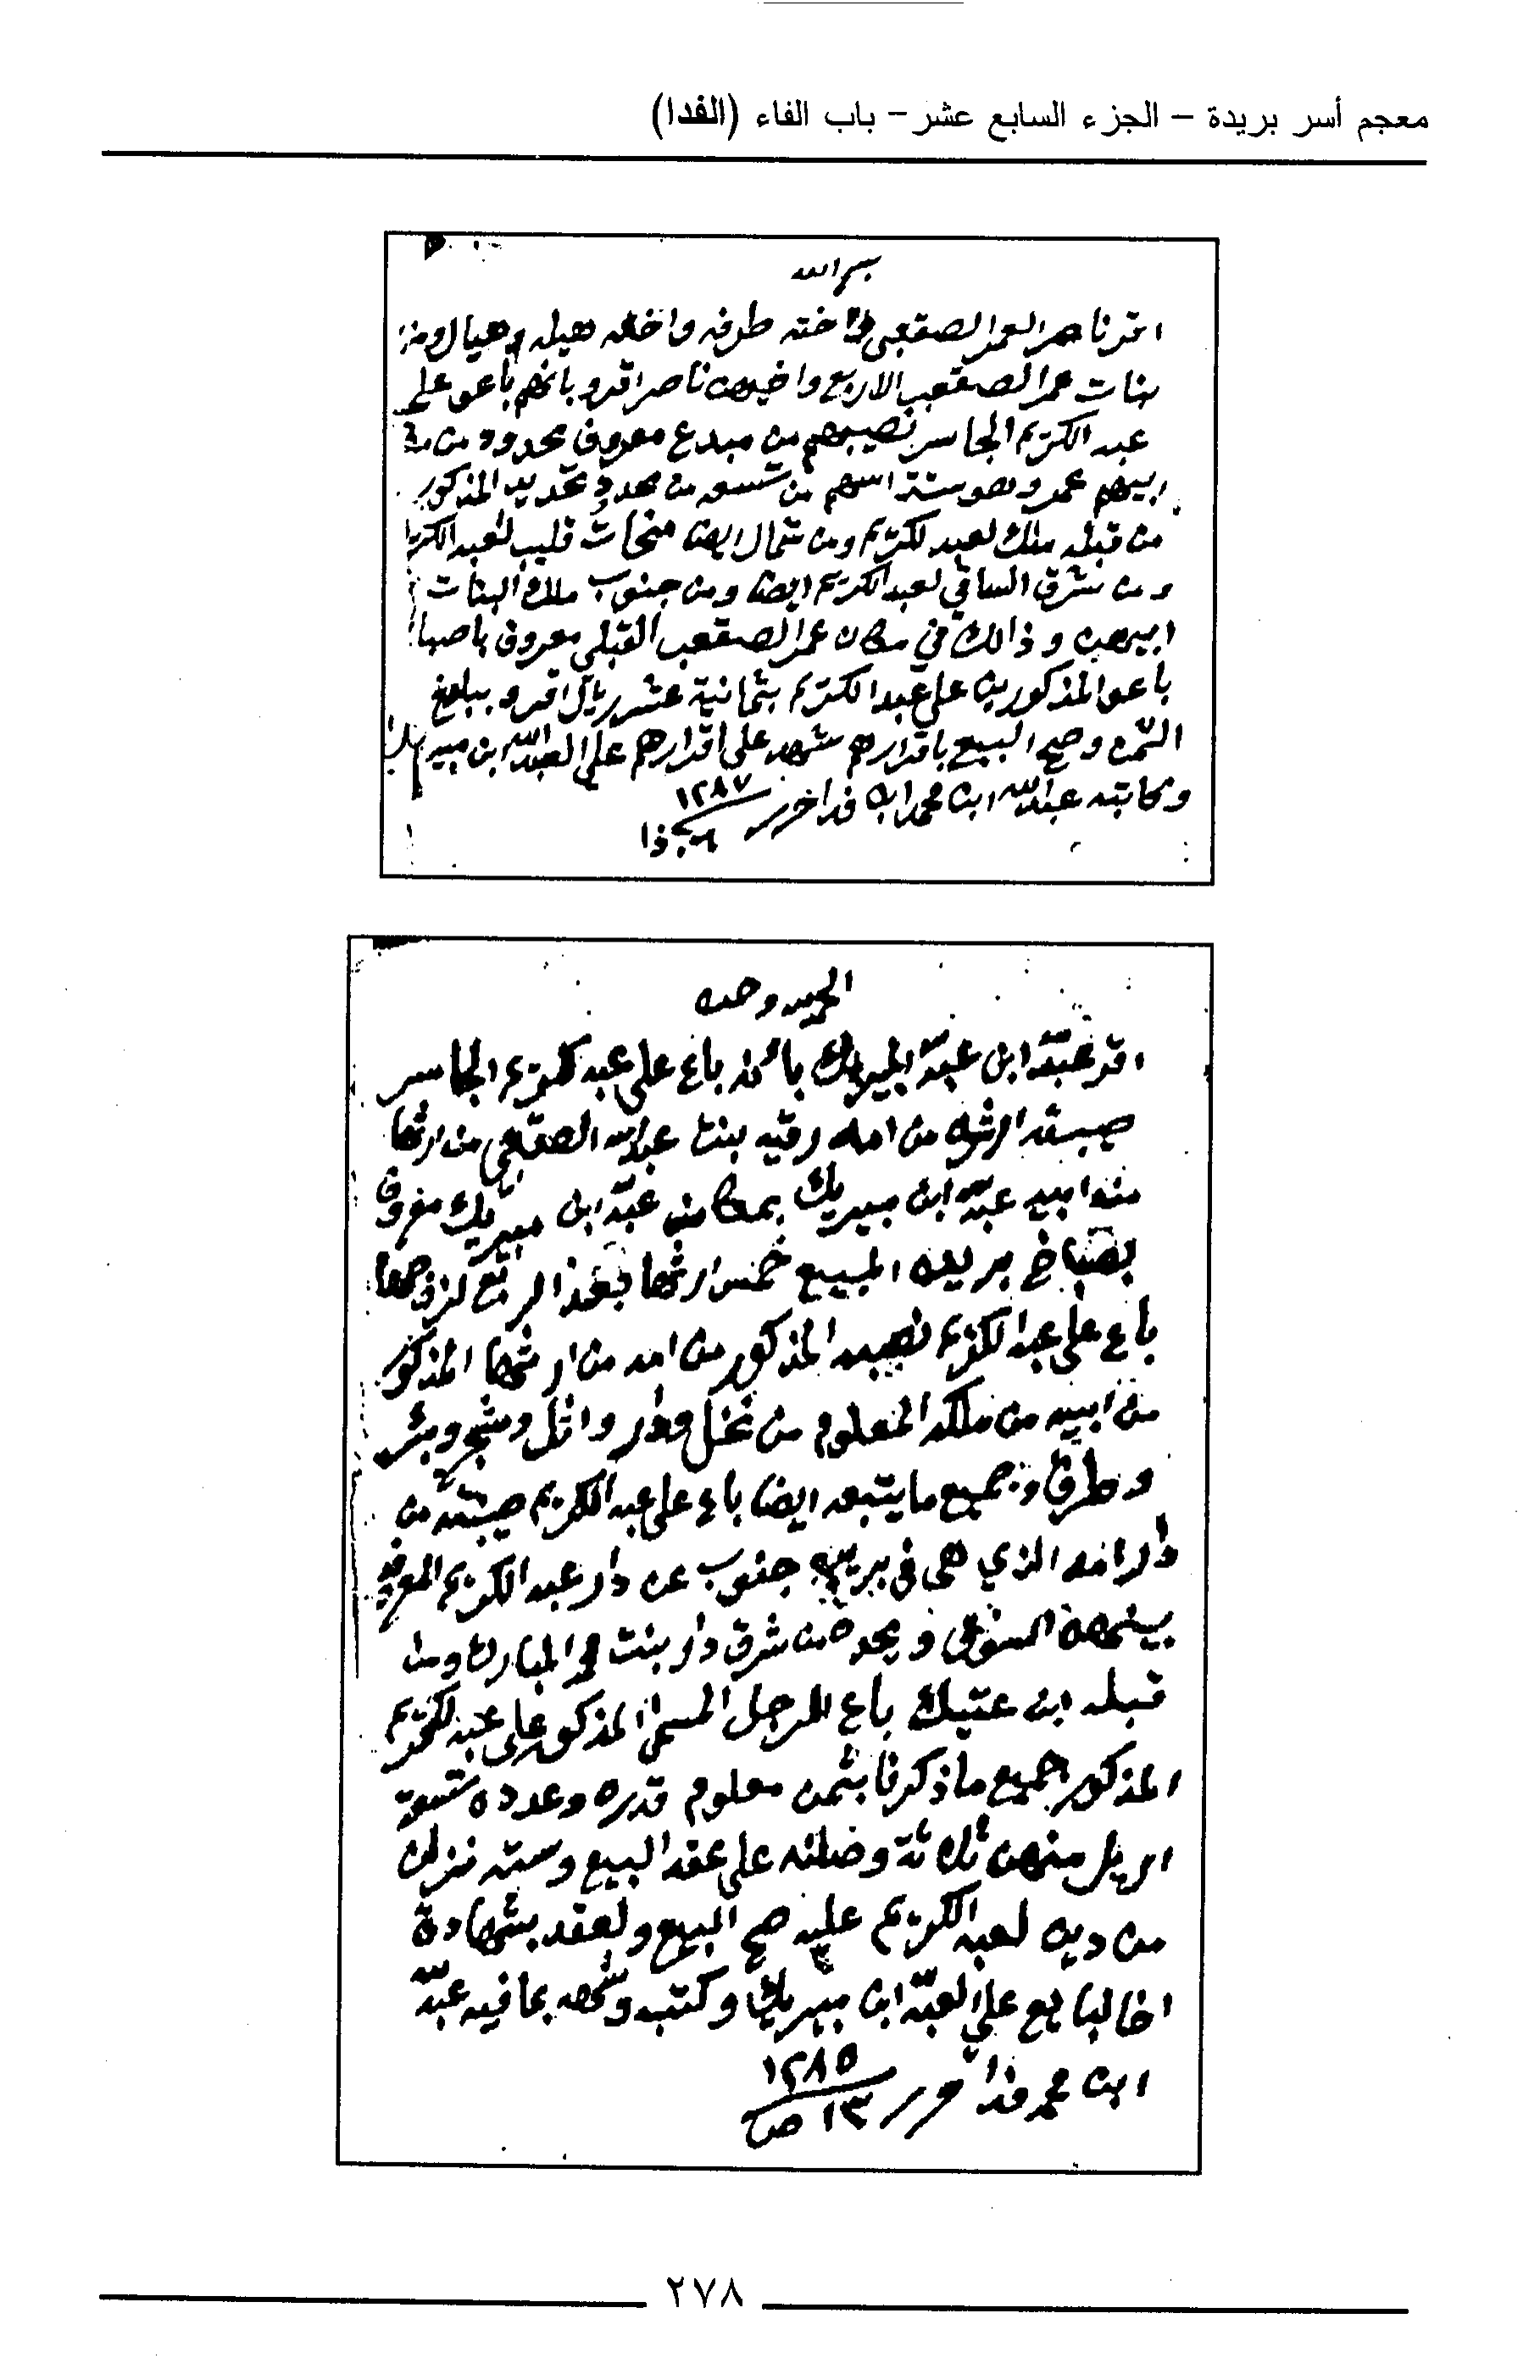 معجم أسر بريدة – الجزء السابع عشر – باب الفاء (الفدا)
بسم الله
اقر ناصر العمر الصقعبي واخته طرفه واخته هيله وهيا
بنات عمر الصقعبي الاربع واخيهن ناصر اقروا بانهم باعو على
عبد الكريم الجاسر نصيبهم من مبدع معروف محدود من
ابيهم عمر وهو ستة اسهم من تسعه من محدود تحديد المذكور
من قبله ملك لعبد لكريم ومن شمال ايضا منحات قليب لعبد الكريم
ومن شرق الساقي لعبد الكريم ايضا ومن جنوب ملك البنات
ابيهن وذالك في مكان عمر الصقعبي القبلي معروف
باعو المذكورين على عبد الكريم بثمانية عشر ريال اقرو ببلوغ
الثمن وصح البيع باقرارهم شهد على اقرارهم علي العبدالله ابن مبيريك
وكاتبه عبدالله ابن محمد ابن فدا حرر ١٢٨٧
٦ ذا
الحمد لله وحده
اقر عبدالله ابن عبدالله المبيريك بانه باع على عبد لكريم الجاسر
صيبته من امه رقيه بنت عبدالله الصقعبي من ارثها
من ابيه عبدالله ابن مبيريك بمكان عبدالله ابن مبيريك معروف
بصباخ بريده المبيع خمس ارثها
باع على عبد الكريم نصيبه المذكور من امه من ارثها المذكور
من ابيه من ملكه المعلوم من نخل ودار واثل وشجر وبئر
وطرق وجميع ما يتبعه ايضا باع على عبد الكريم صيبته من
دار امه الذي هي في بريده جنوب عن دار عبد الكريم المعروفه
بينهن السوق ويحده من شرق دار بنت المبارك ومن
قبله ابن عتيك باع الرجل المسمى المذكور على عبد لكريم
المذكور جميع ما ذكرنا بثمن معلوم قدره وعدده تسعة
اريل منهن ثلاثة وصلنه على عقد البيع وسته نزلن
من دين لعبد الكريم عليه صح البيع ولعقد بشهادة
اخا لبايع علي العبدالله ابن مبيريك وكتبه وشهد بما فيه عبدالله
ابن محمد فدا حرر ١٢٨٥
١٣ ص
٢٧٨